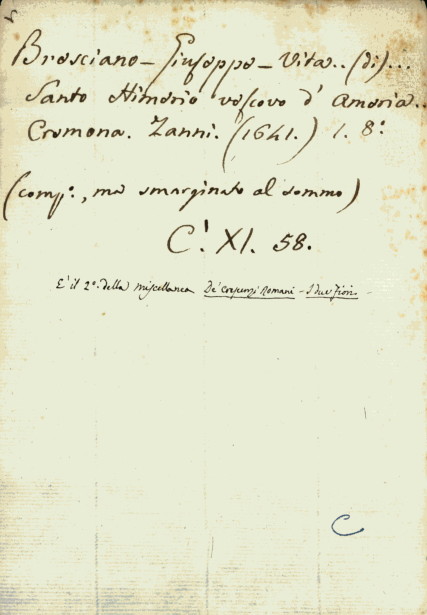 Bresciano - Giuseppe - Vita.. (di)...
Santo Himerio vescovo d' Ameria..
Cremona. Zanni. (1641.) 1. 8.º
(comp.º, ma smarginato al sommo)
C! XI. 58.
E' il 2.º della miscellanea De' Crescenzi Romani - I due Fiori
C